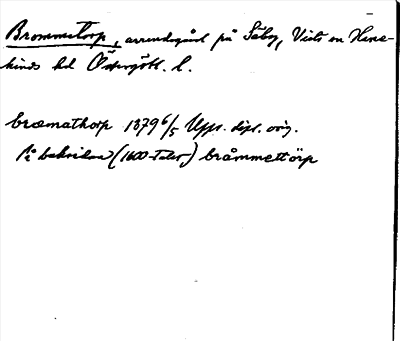 Brommetorp, arrendegård på Säby, Vists sn Hane-
kinds hd Östergötl. l.
bræmathorp 1379 6/5 Upps. dipl. orig.
På baksidan (1600-talet) bråmmettörp